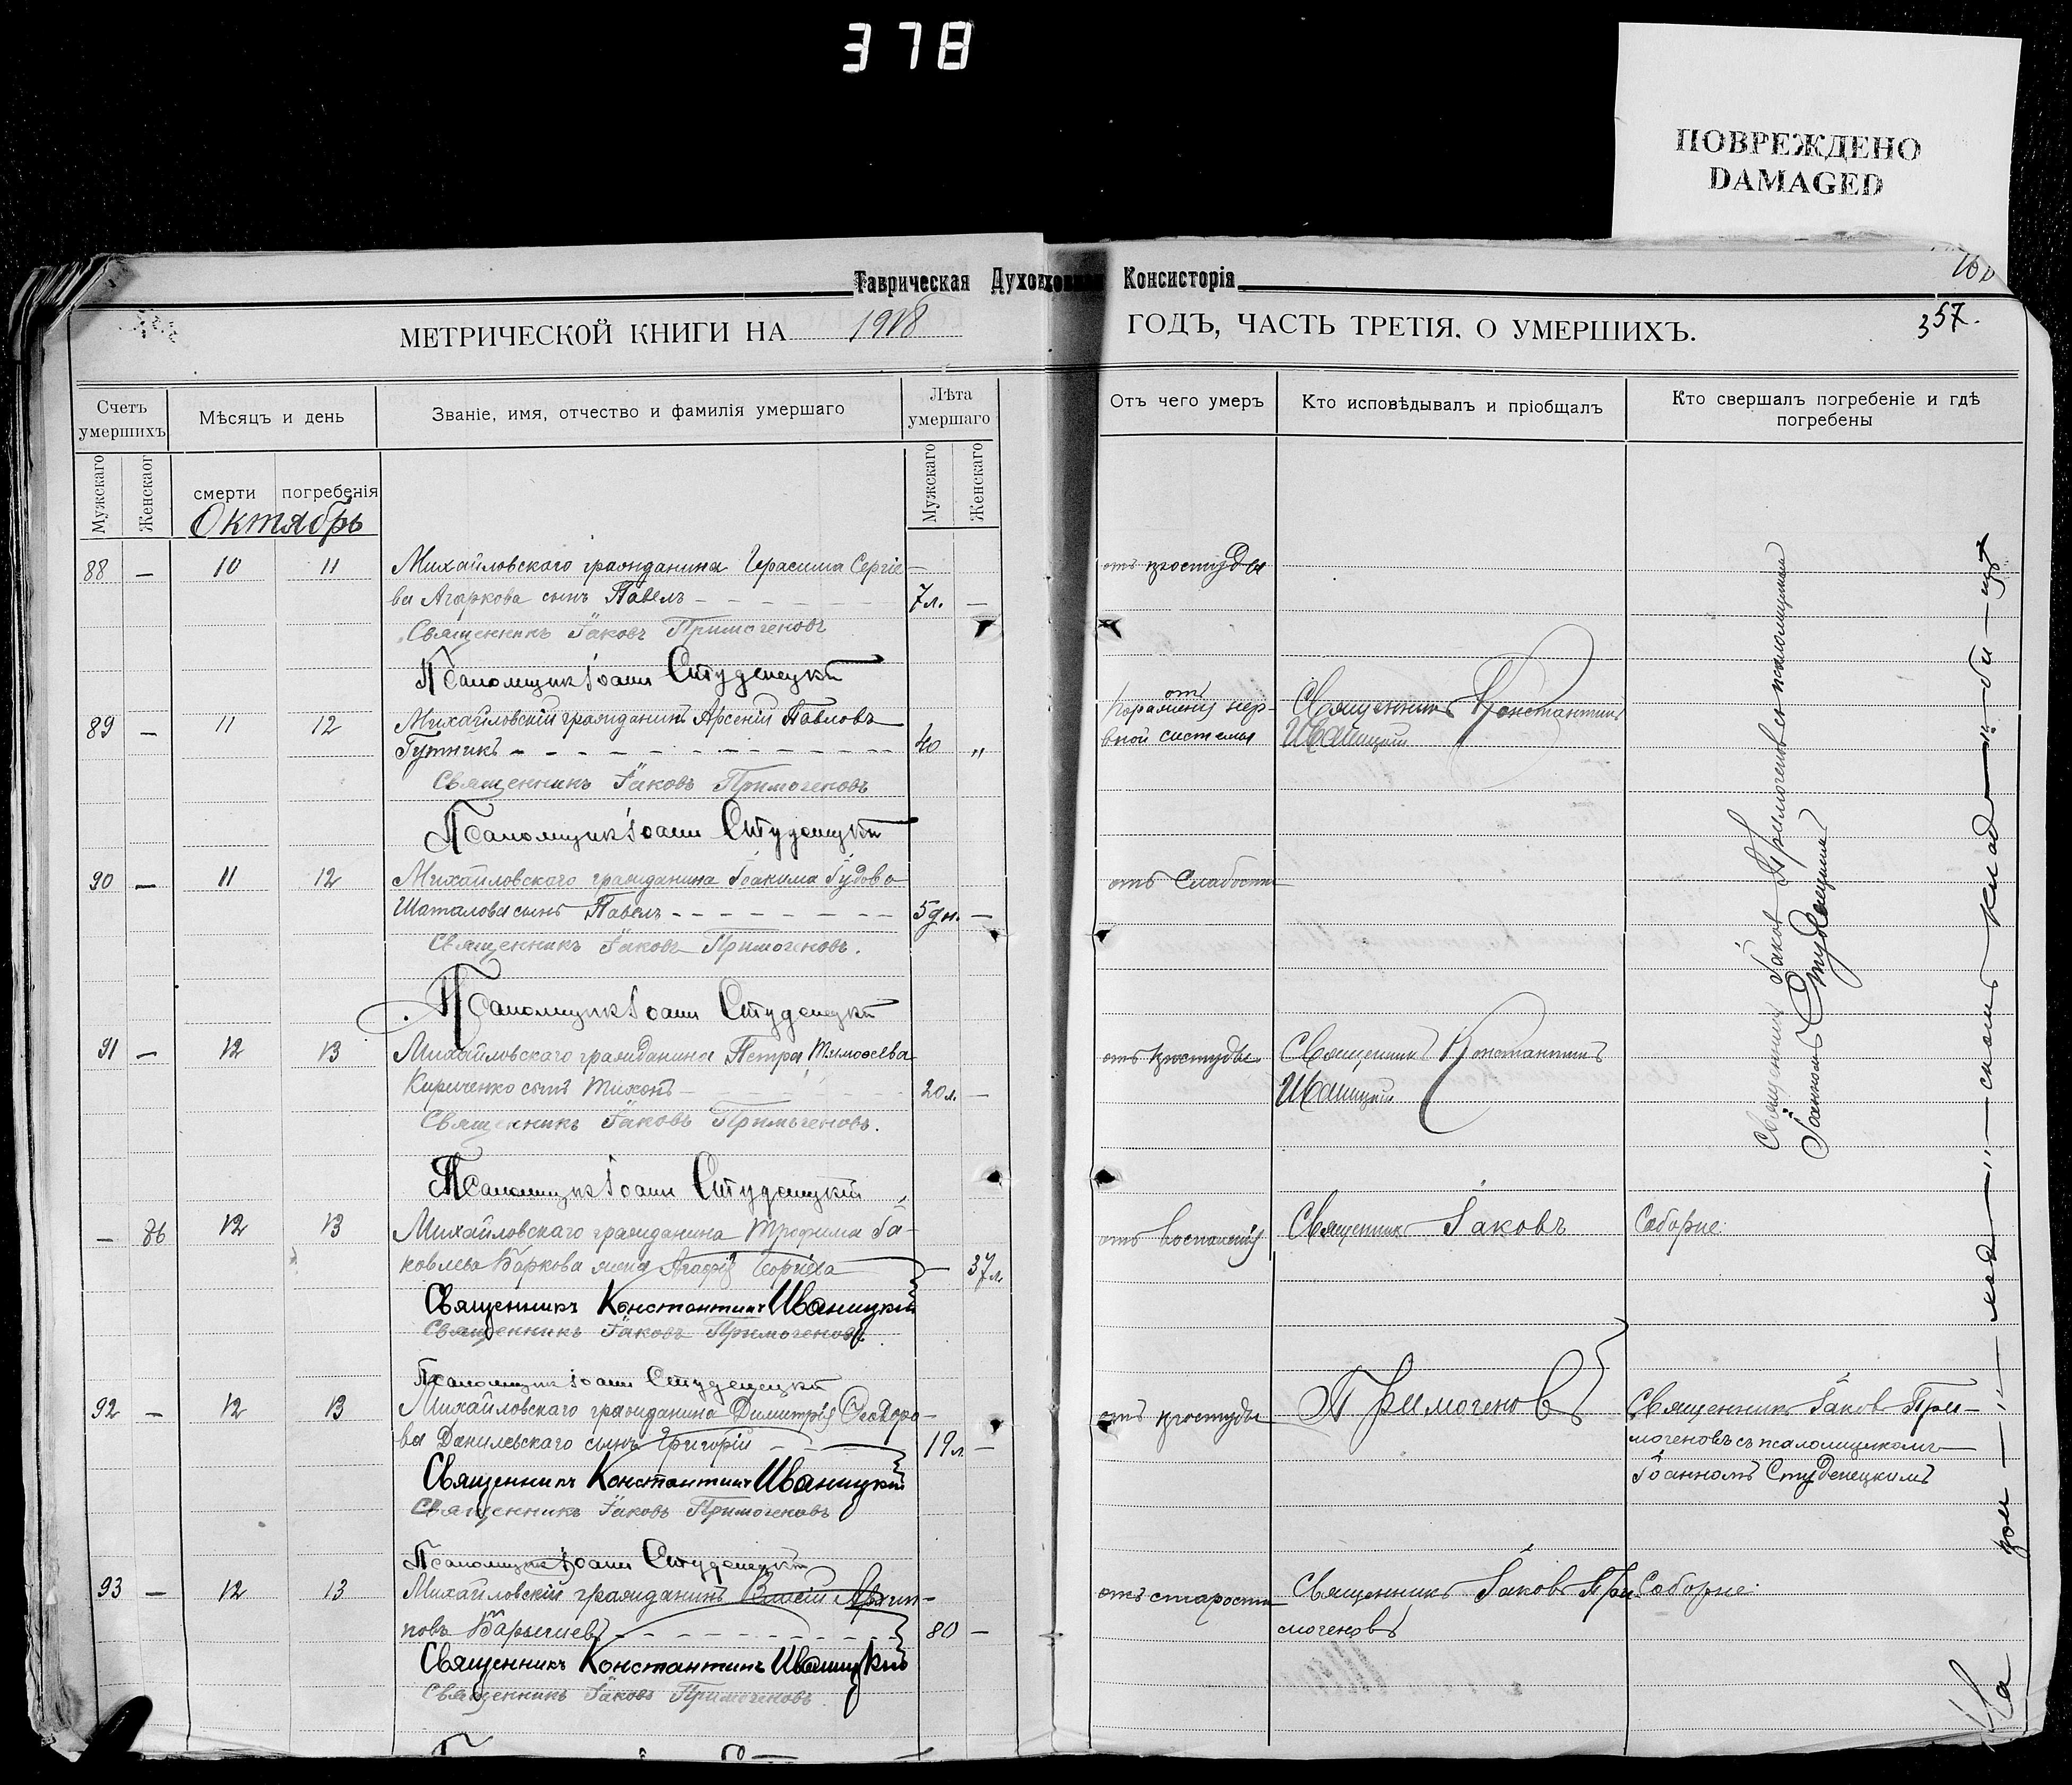 378
ПОВРЕЖДЕНО
DAMAGED
Таврическая Духовная Консисторія
МЕТРИЧЕСКОЙ КНИГИ НА 1918 ГОДЪ, ЧАСТЬ ТРЕТІЯ. О УМЕРШИХЪ.
357.
Счетъ умершихъ
Мѣсяцъ и день
Званіе, имя, отчество и фамилія умершаго
Лѣта умершаго
Отъ чего умеръ
Кто исповѣдывалъ и пріобщалъ
Кто свершалъ погребеніе и гдѣ погребены
Мужскаго
Женскаог
смерти
погребенія
Мужскаго
Женскаго
Октябрь
88 — 10 11 Михайловского гражданина Герасима Сергіе- отъ простуды
ва Агаркова сынъ Павелъ 7 л. —
Священникъ Іаковъ Примогеновъ
Псаломщикъ Іоаннъ Студенецкій
89 — 11 12 Михайловскій гражданинъ Арсеній Павловъ отъ пораженія нер- Священникъ Константинъ
Гутникъ 40 " вной системы Иваницкій
Священникъ Іаковъ Примогеновъ
Псаломщикъ Іоаннъ Студенецкій
90 — 11 12 Михайловского гражданина Іоакима отъ слабости
Шаталова сынъ Павелъ 5 дн. —
Священникъ Іаковъ Примогеновъ.
Псаломщикъ Іоаннъ Студенецкій
91 — 12 13 Михайловского гражданина Петра Тимофеева отъ простуды Священникъ Константинъ
Кириченко сынъ Тихонъ 20 л. — Иваницкій
Священникъ Іаковъ Примогеновъ.
Псаломщикъ Іоаннъ Студенецкій
Священникъ Іаковъ Примогеновъ съ псаломщикомъ
Іоанномъ Студенецкимъ
— 86 12 13 Михайловскаго гражданина Трофима Іа- отъ воспаленія Священникъ Іаковъ Соборне:
ковлева Баркова жена Агафія — 37 л.
Священникъ Константинъ Иваницкій
Священникъ Іаковъ Примогеновъ.
Псаломщикъ Іоаннъ Студенецкій
92 — 12 13 Михайловскаго гражданина Димитрія Ѳеодоро- отъ простуды Примогеновъ Священникъ Іаковъ При-
ва Данилевскаго сынъ Григорій 19 л. — могеновъ съ псаломщикомъ
Священникъ Константинъ Иваницкій Іоанномъ Студенецкимъ
Священникъ Іаковъ Примогеновъ
Псаломщикъ Іоаннъ Студенецкій
93 — 12 13 Михайловскій гражданинъ Власій Архип- отъ старости Священникъ Іаковъ При- Соборне:
повъ 80 — могеновъ
Священникъ Константинъ Иваницкій
Священникъ Іаковъ Примогеновъ.
На